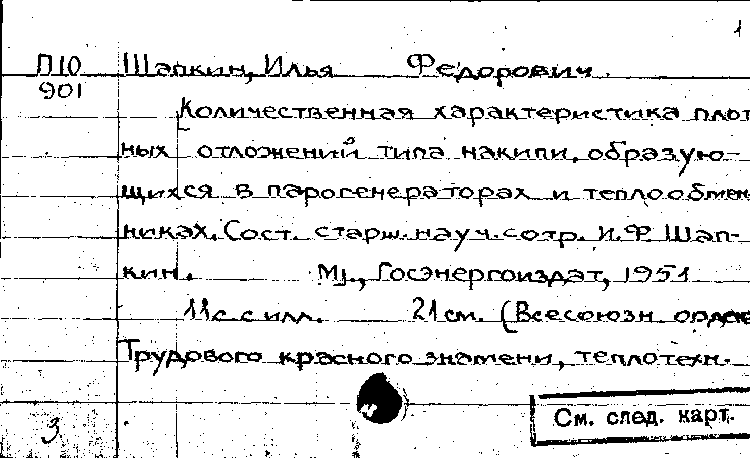 1
П10 Шапкин, Илья Федорович.
901
Количественная характеристика плот
ных отложений типа накипи, образую-
щихся в парогенераторах и теплообмен
никах. Сост. старш. науч. сотр. И.Ф. Шап-
кин. М., Госэнергоиздат, 1951
11 с. с илл. 21 см. (Всесоюзн. орден
Трудового красного знамени, теплотехн.
3
См. след. карт.